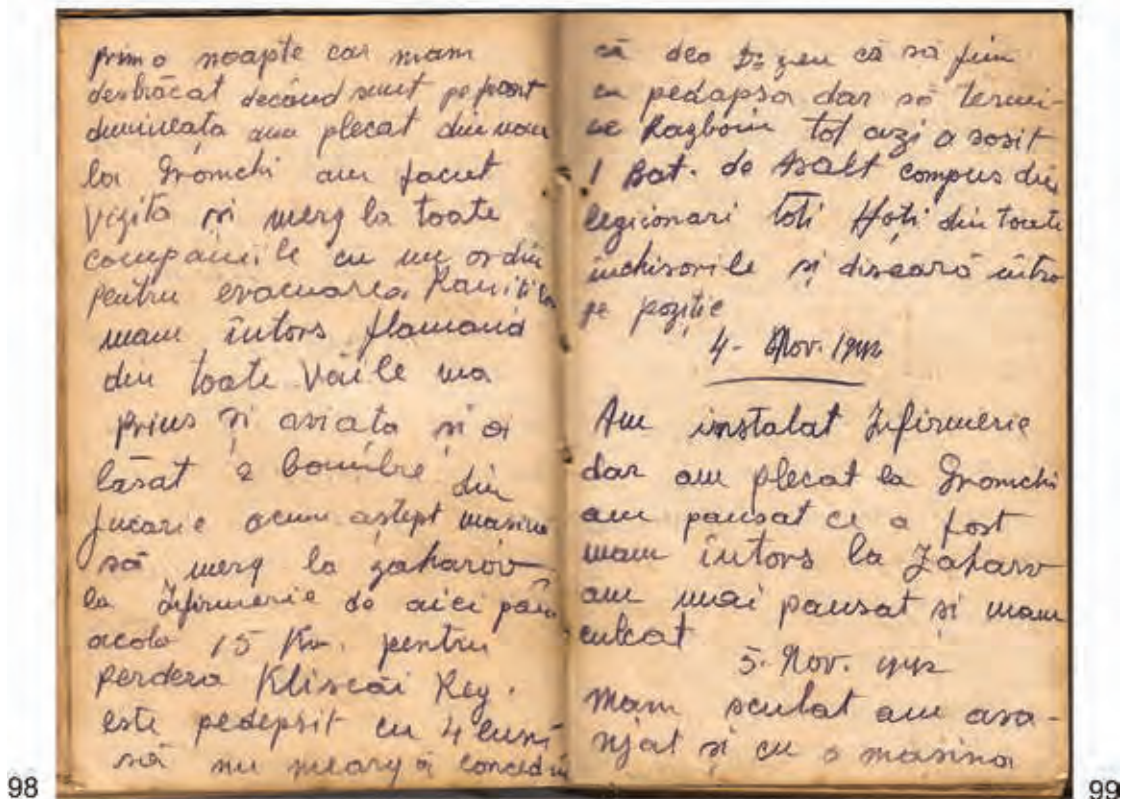 prima noapte car mam
desbrăcat decând sunt pe front
dumineata am plecat din nou
la Gromchi am facut
vizita și merg la toate
companiile cu un ordin
pentru evacuarea Raniților
mam întors flamand
din toate Văile ma
prins și aviata și a
lăsat 2 bombre din
Jucarie acum aștept masina
să merg la zaharov
la Infirmerie de aici până
acolo 15 Km. pentru
perdera Kliscăi Reg.
este pedepsit cu 4 luni
să nu mearga concediu
98
că dea Dzeu că să fim
cu pedapsa dar să termi-
ne Razboiu tot azi a sosit
1 Bat. de Asalt compus din
legionari toti Hoți din toate
inchisorile și diseară intra
pe poziție
4- Nov. 1942
Am instalat Infirmerie
dar am plecat la Gromchi
am pansat ce a fost
mam întors la Zaharv
am mai pansat si mam
culcat
5. Nov. 1942
Mam sculat am ara-
njat și cu o masina
99